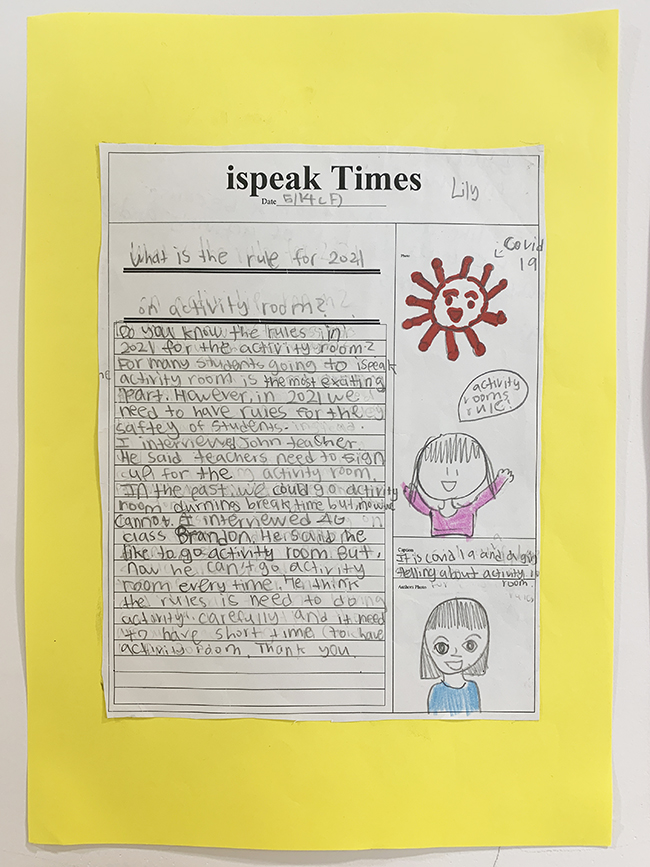 ispeak Times
Lily
Date 5/14 (F)
What is the rule for 2021
on activity room?
Do you know the rules in
2021 for the activity room?
For many students going to ispeak
activity room is the most exciting
part. However, in 2021 we
need to have rules for the
saftey of students.
I interviewed John teacher.
He said teachers need to sign
up for the activity room.
In the past we could go activity
room durning break time but now we
cannot. I interviewed 4G
class Brandon. He said he
like to go activity room but,
now he can't go activity
room every time. He think
the rules is need to do
activity carefully and it need
to have short time to have
activity room. Thank you
Photo
Covid
19
activity
rooms
rule!
Caption
It is covid 19 and a
telling about activity
room
rules
Authors Photo